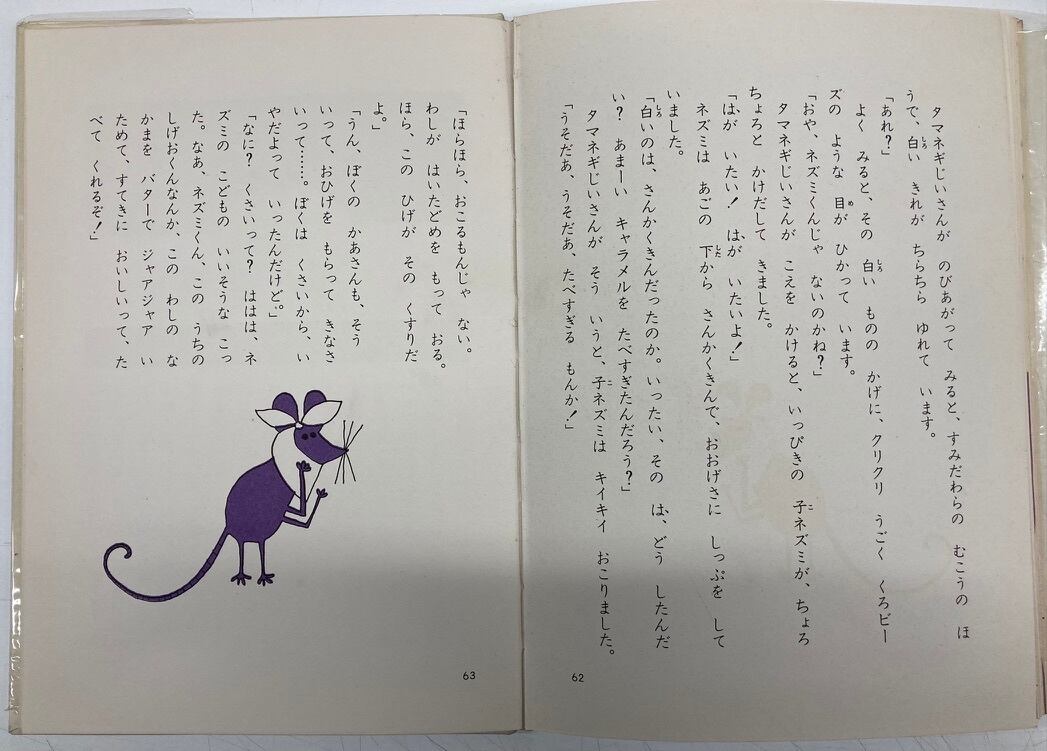 タマネギじいさんが のびあがって みると、すみだわらの むこうの ほ
うで、白い きれが ちらちら ゆれて います。
「あれ?」
よく みると、その 白い ものの かげに、クリクリ うごく くろビー
ズの ような 目が ひかって います。
「おや、ネズミくんじゃ ないのかね?」
タマネギじいさんが こえを かけると、いっぴきの 子ネズミが、ちょろ
ちょろと かけだして きました。
「はが いたい! はが いたいよ!」
ネズミは あごの 下から さんかくきんで、おおげさに しっぷを して
いました。
「白いのは、さんかくきんだったのか。いったい、その は、どう したんだ
い? あまーい キャラメルを たべすぎたんだろう?」
タマネギじいさんが そう いうと、子ネズミは キイキイ おこりました。
「うそだあ、うそだあ、たべすぎる もんか!」
62
「ほらほら、おこるもんじゃ ない。
わしが はいたどめを もって おる。
ほら、この ひげが その くすりだ
よ。」
「うん、ぼくの かあさんも、そう
いって、おひげを もらって きなさ
いって……。ぼくは くさいから、い
やだよって いったんだけど。」
「なに? くさいって? ははは、ネ
ズミの こどもの いいそうな こっ
た。なあ、ネズミくん、この うちの
しげおくんなんか、この わしの な
かまを バターで ジャアジャア い
ためて、すてきに おいしいって、た
べて くれるぞ!」
63